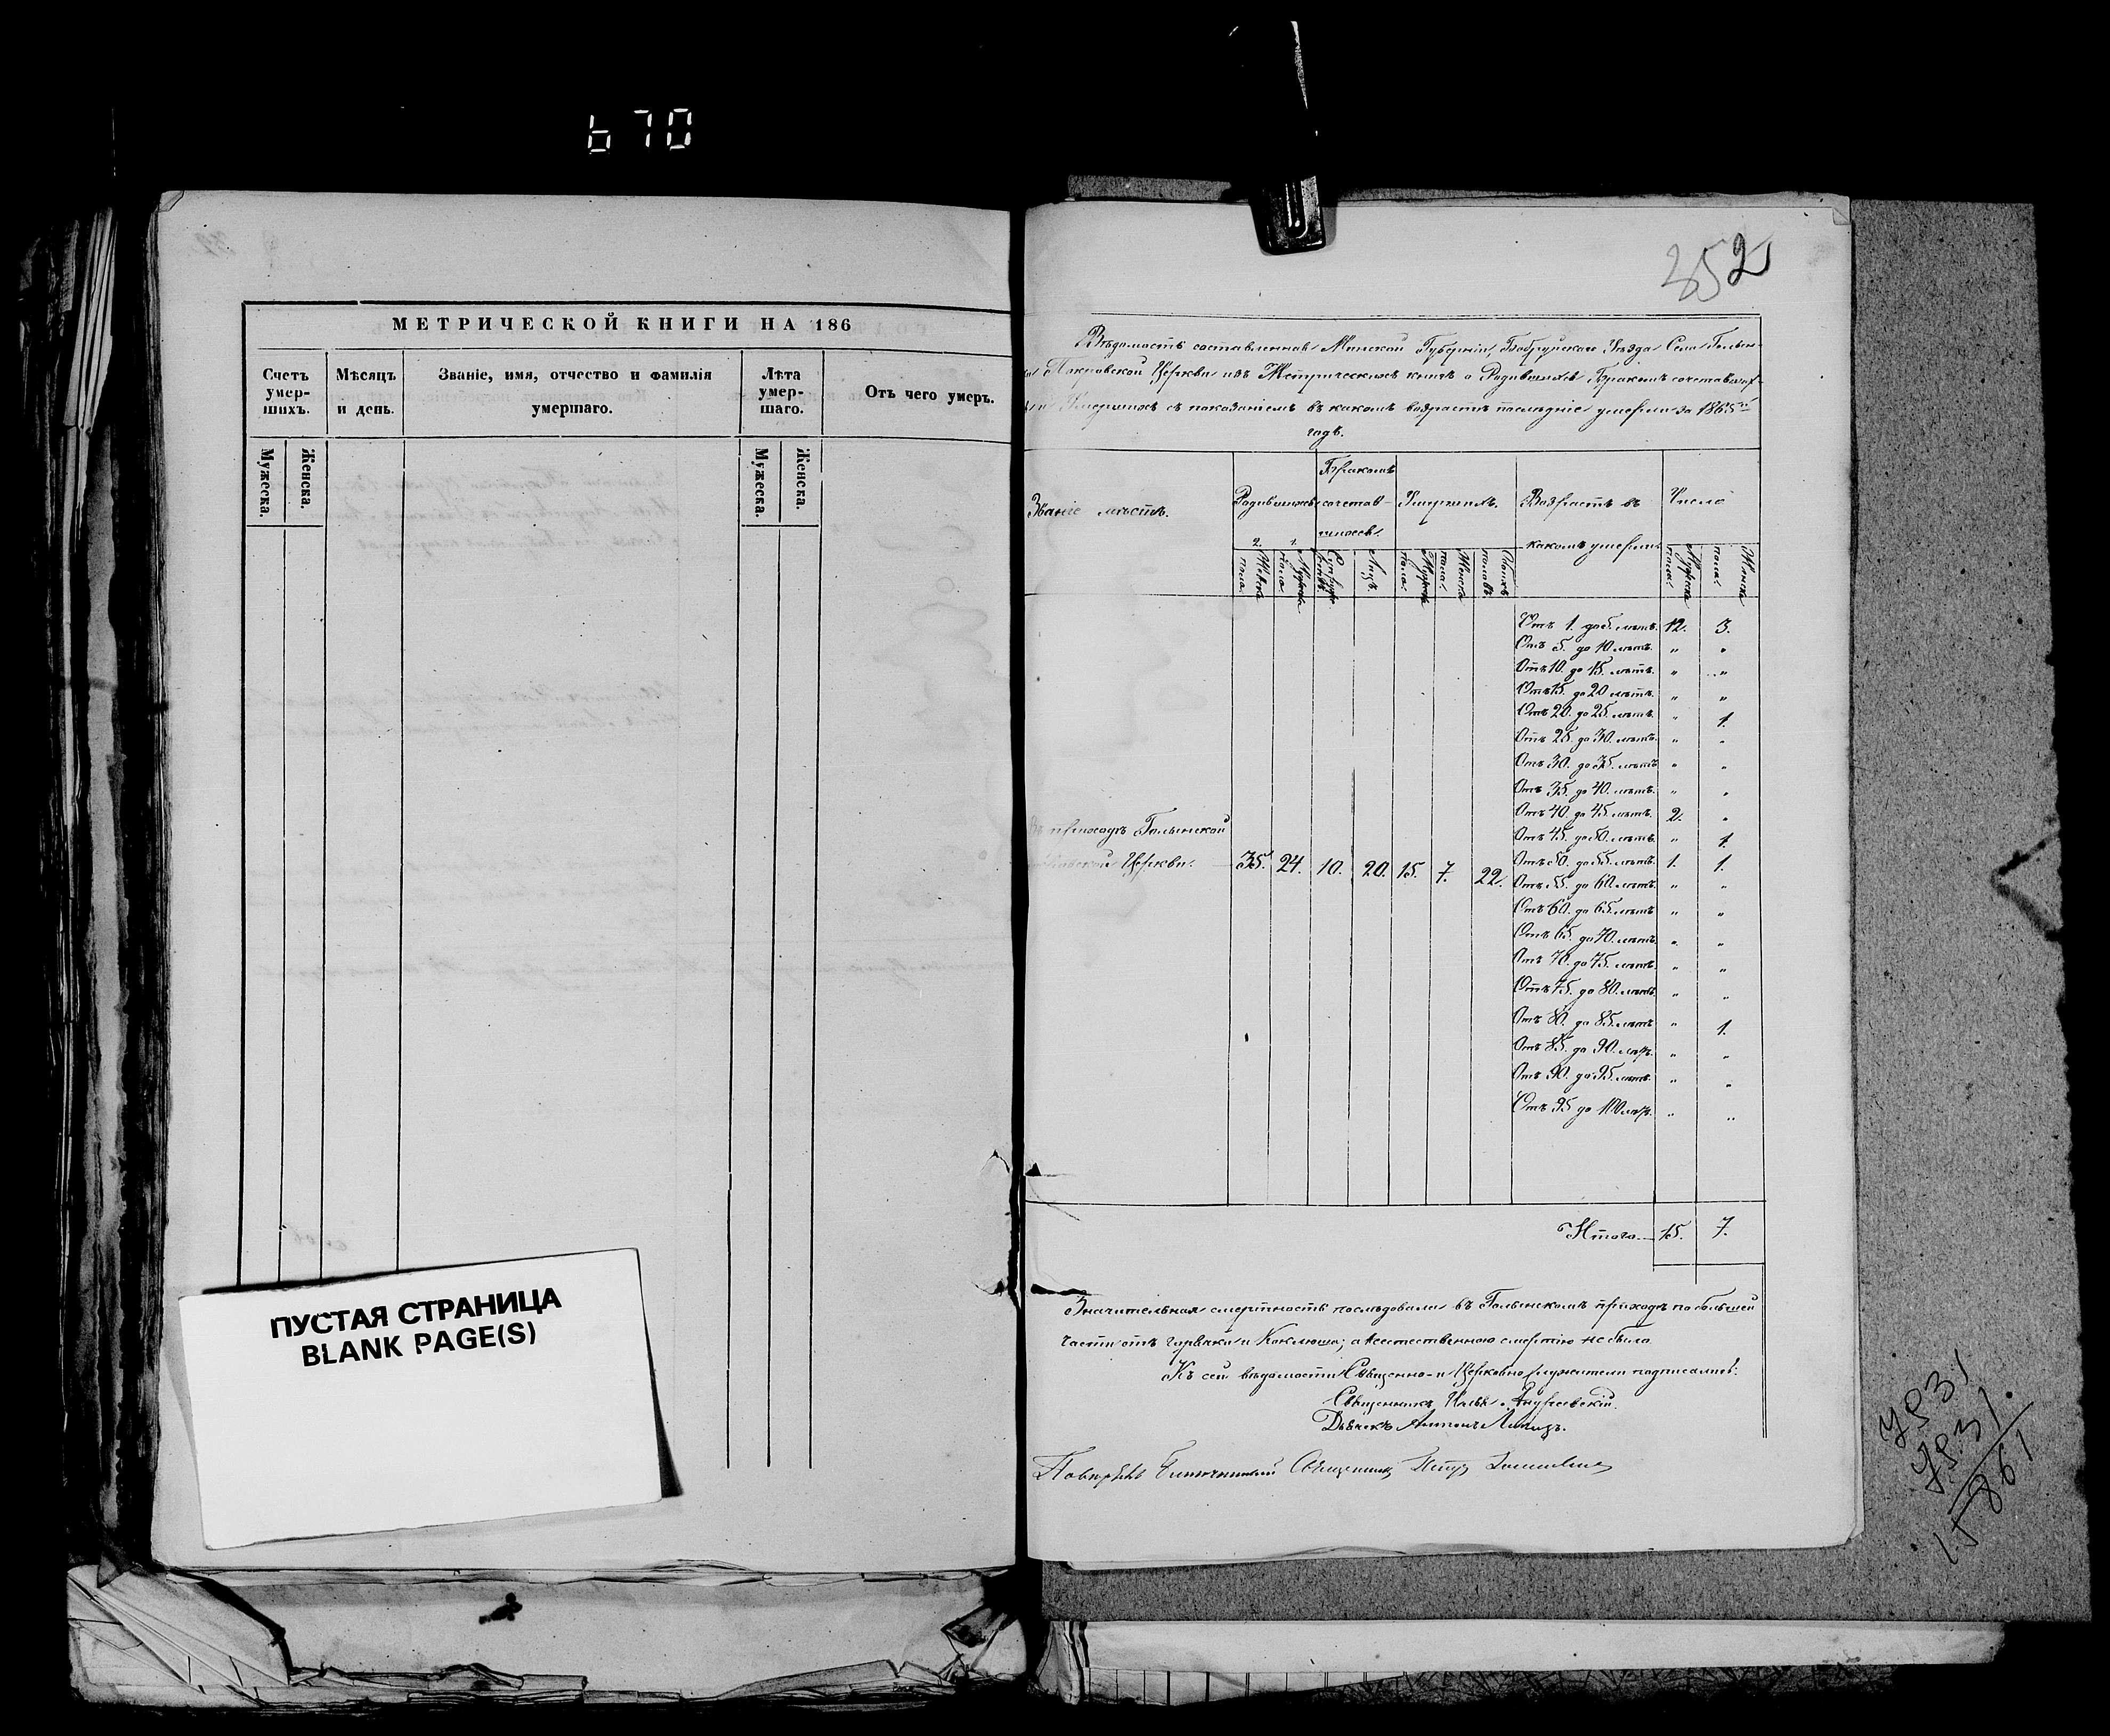 670
МЕТРИЧЕСКОЙ КНИГИ НА 186
Счетъ умерших.
Мѣсяцъ и день.
Званіе, имя, отчество и фамилія умершаго.
Лѣта умершаго.
Отъ чего умеръ.
Мужеска.
Женска.
Мужеска.
Женска.
ПУСТАЯ СТРАНИЦА
BLANK PAGE(S)
352
Вѣдомость составленная Минской Губерніи, Бобруйскаго Уѣзда Села Голын-
Покровской Церкви изъ Метрическихъ книгъ о Родившихся Бракомъ сочетавших-
Умершихъ съ показаніемъ въ какомъ возрастѣ послѣдніе умерли за 1865й
годъ.
Званіе мѣстъ.
Родившихся
Бракомъ сочетав-шихся.
Умершихъ.
Возрастъ въ какомъ умерли
Число
2. 1.
Женска пола.
Мужеска пола.
Супружествъ.
Лицъ.
Мужеска пола.
Женска пола.
Обоихъ половъ
Мужеска пола.
Женска пола.
Отъ 1. до 5. лѣтъ. 12. 3.
Отъ 5. до 10. лѣтъ. " "
Отъ 10. до 15. лѣтъ. " "
Отъ 15. до 20 лѣтъ. " "
Отъ 20. до 25. лѣтъ. " 1.
Отъ 25. до 30. лѣтъ. " "
Отъ 30. до 35. лѣтъ " "
Отъ 35. до 40. лѣтъ. " "
Отъ 40. до 45. лѣтъ. 2. "
Отъ 45. до 50. лѣтъ. " 1.
Отъ 50. до 55. лѣтъ. 1. 1.
Отъ 55. до 60. лѣтъ. " "
Отъ 60. до 65. лѣтъ " "
Отъ 65. до 70. лѣтъ. " "
Отъ 70. до 75. лѣтъ. " "
Отъ 75. до 80. лѣтъ. " "
Отъ 80. до 85. лѣтъ " 1.
Отъ 85. до 90. лѣтъ. " "
Отъ 90. до 95. лѣтъ. " "
Отъ 95 до 100 лѣтъ. " "
приходѣ Голынской
Церкви. 35. 24. 10. 20. 15. 7. 22.
Итого 15. 7.
Значительная смертность послѣдовала въ Голынскомъ приходѣ по большей
части отъ горячки и Коклюша; а естественною смертію не было
Къ сей вѣдомости Священно- и Церковнослужители подписались:
Священникъ Илья
Дьячекъ Антонъ
Повѣрялъ Благочинный Священникъ Петръ
7931
7931
15861